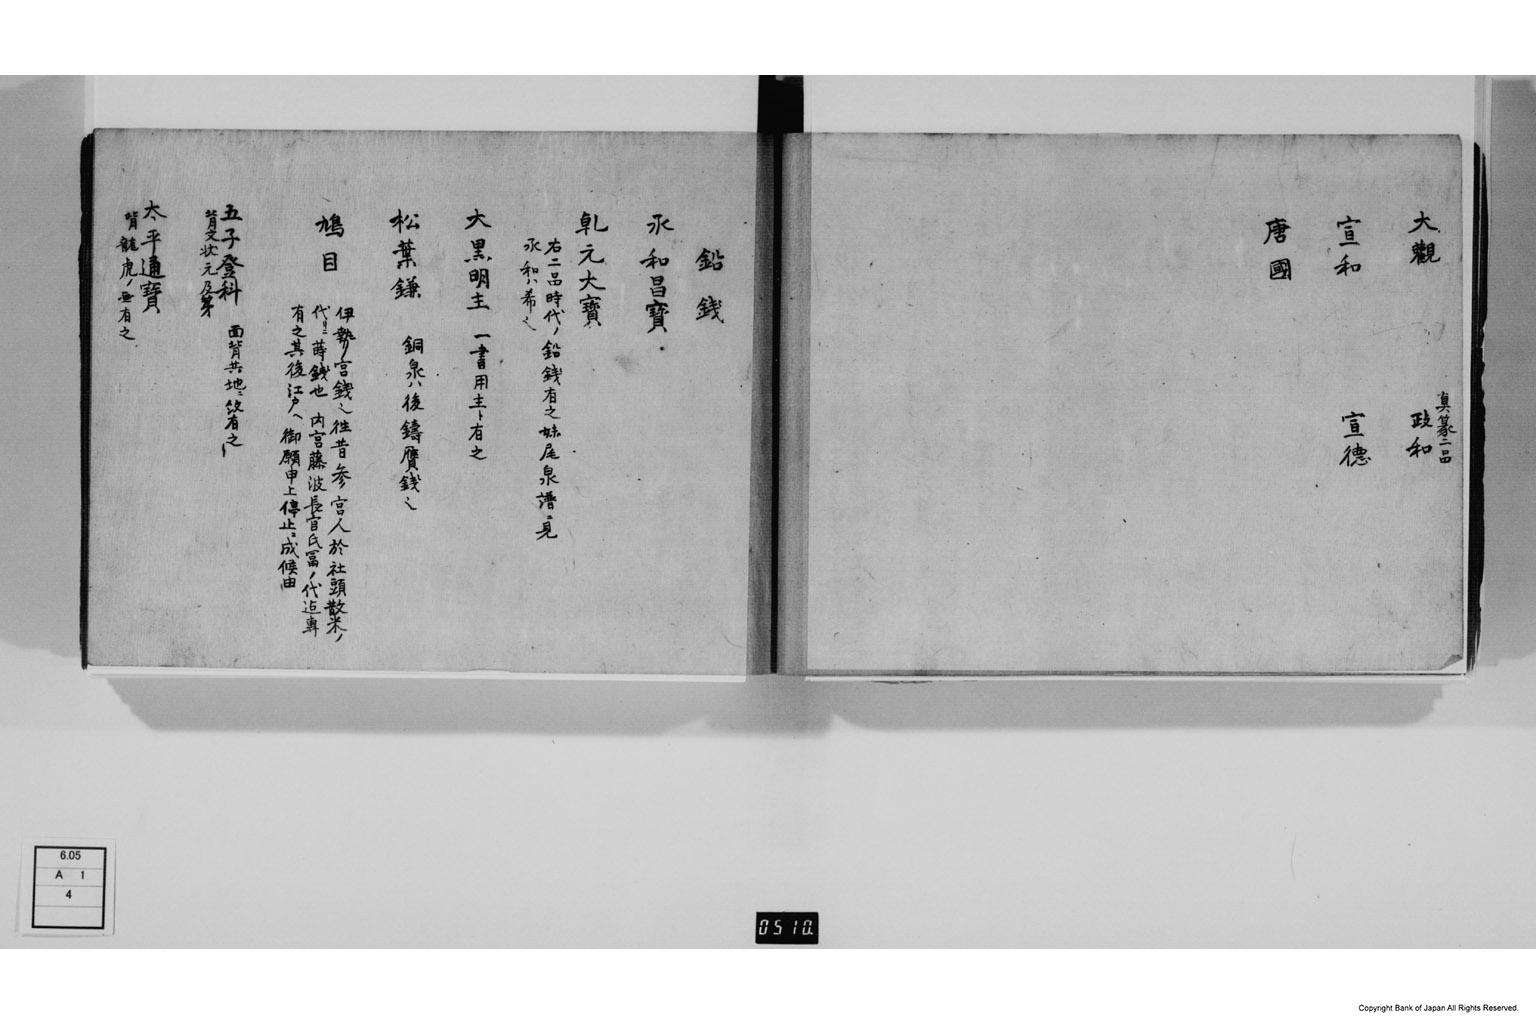 大觀
真篆二品
政和
宣和
宣德
唐國
鉛錢
永和昌寶
乹元大寶
右二品時代ノ鉛錢有之妹尾泉譜ニ見
永和ハ希之
大黒明主 一書用主ト有之
松葉鎌 銅泉ハ後鑄贋錢之
鳩目
伊勢ノ宮錢之往昔参宮人於社頭散米ノ
代リニ蒔錢也 内宮藤波長官氏冨ノ代迠専
有之其後江戸ヘ御願申上停止ニ成候由
五子登科 面背共地ニ紋有之
背文状元及第
太平通寳
背龍虎ノ画有之
6.05
A 1
4
0510
Copyright Bank of Japan All Rights Reserved.